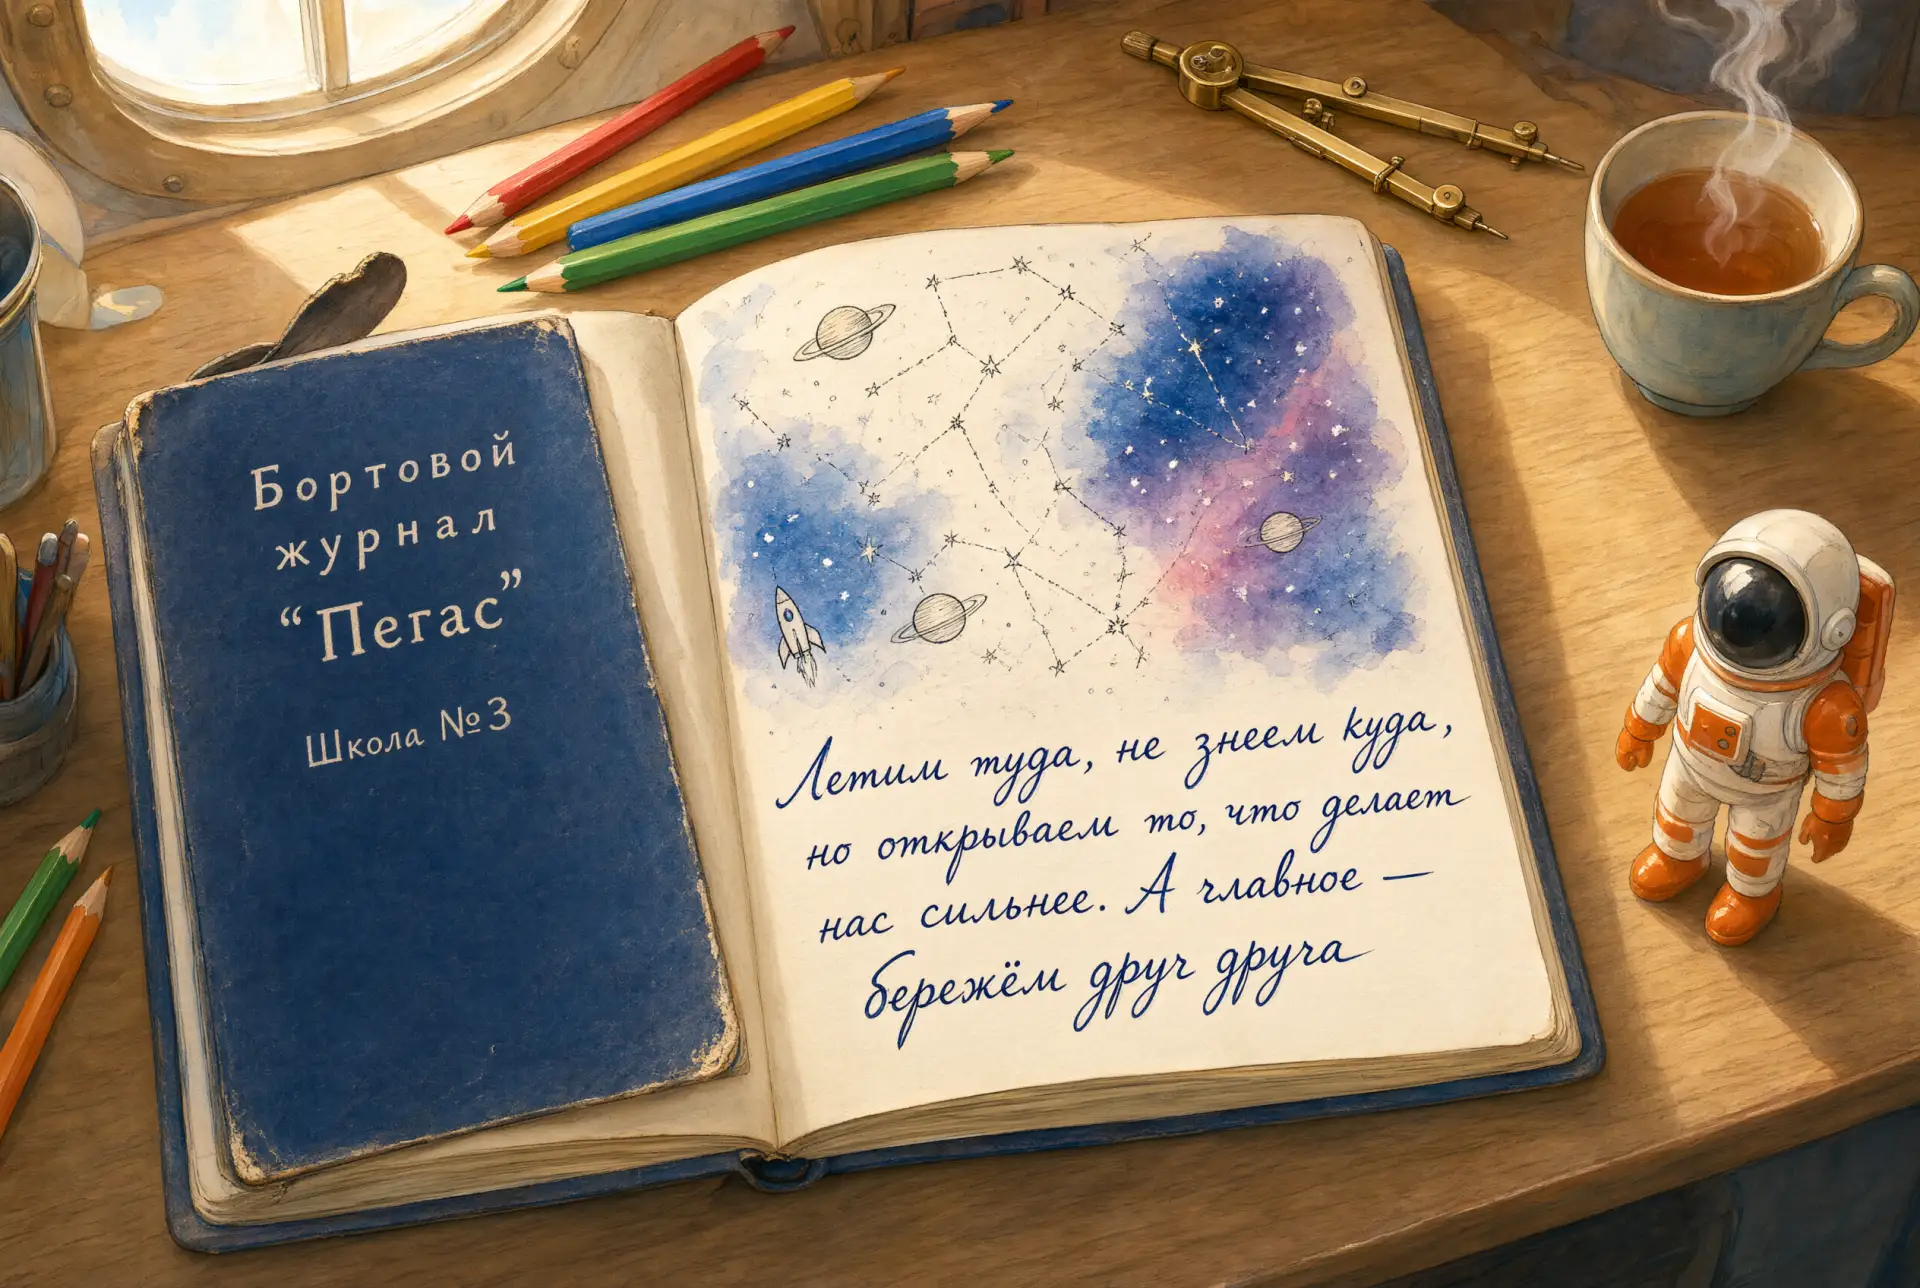 Бортовой
журнал
“Пегас”
Школа №3
Летим туда, не знеем куда,
но открываем то, что делает
нас сильнее. А члавное —
бережём друч друча